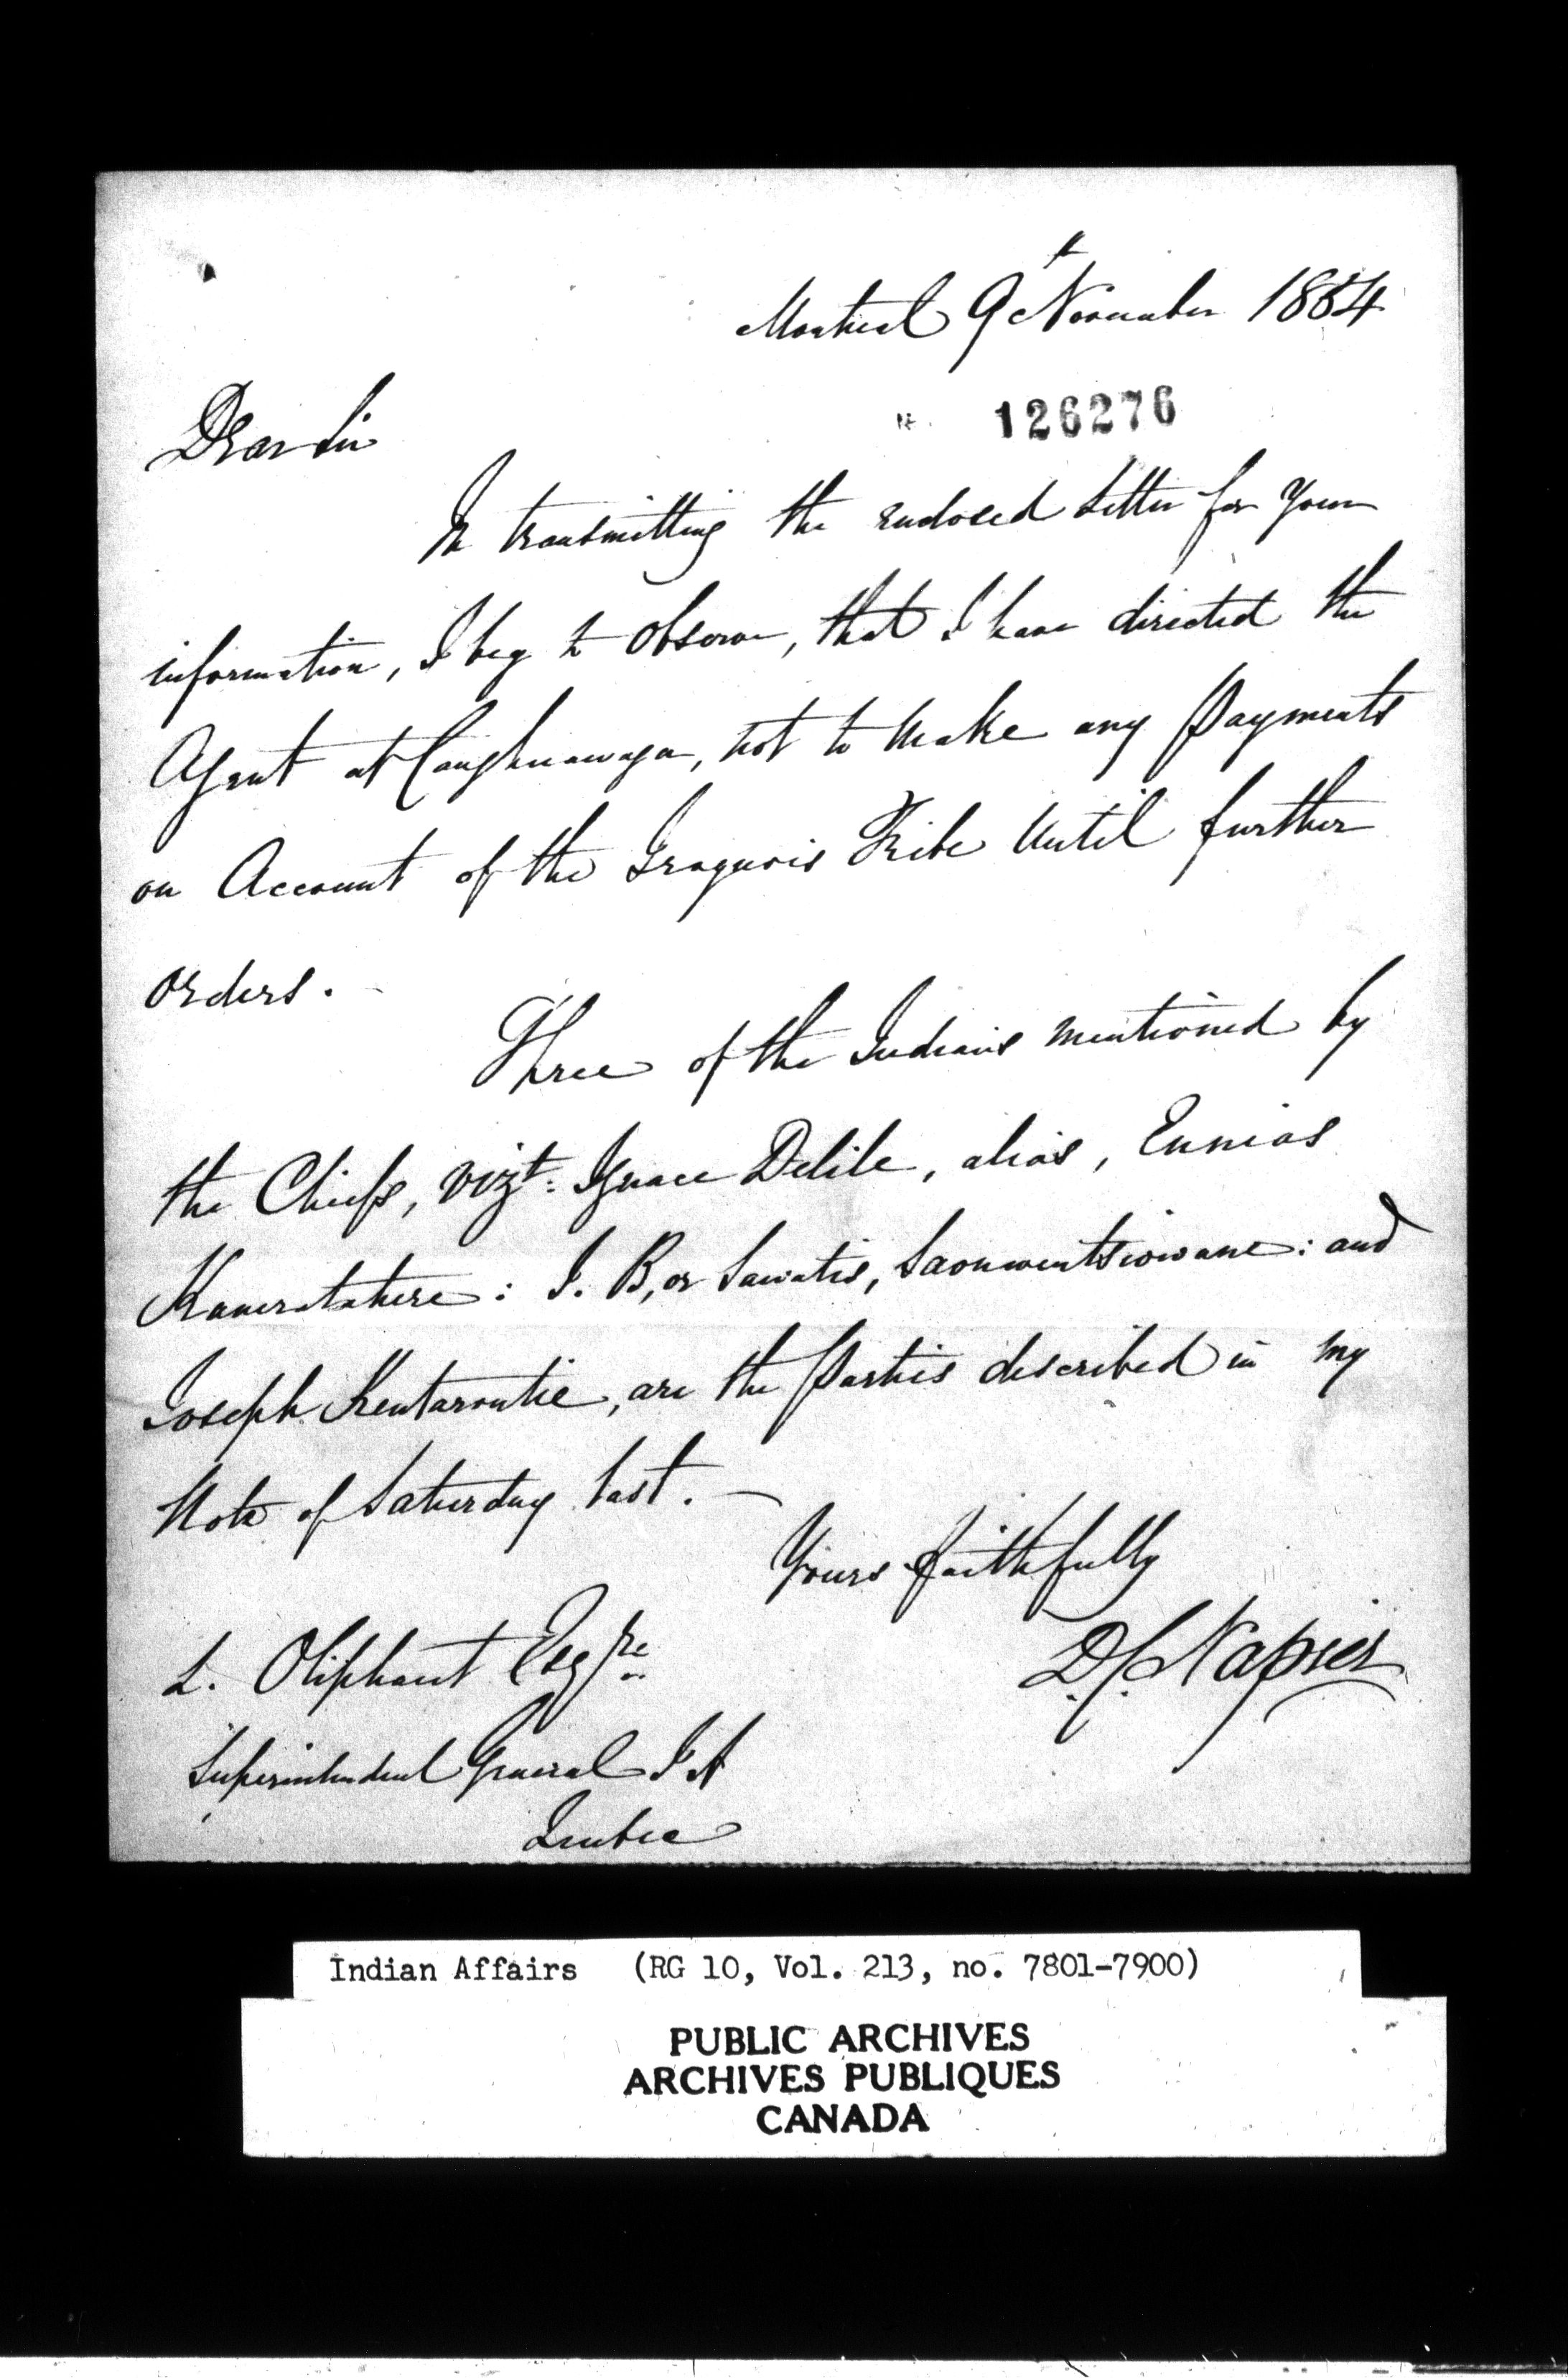 Montreal 9th November 1854
126276
Dear Sir
In transmitting the enclosed Letter for your
information, I beg to observe, that I have directed the
Agent at Caughnawaga, not to make any payments
on Account of the Iroquois Tribe until further
orders.
Three of the Indians mentioned by
the Chiefs, Vizt: Ignace Delile, alias, Ennias
Kaneratahere: J. B, or Sawatis, Saonwentsiowane: and
Joseph Kentarontie, are the Parties described in my
Note of Saturday last. —
Yours faithfully
D. C. Napier
L. Oliphant Esqre
Superintendent General I A
Quebec
Indian Affairs (RG 10, Vol. 213, no. 7801-7900)
PUBLIC ARCHIVES
ARCHIVES PUBLIQUES
CANADA